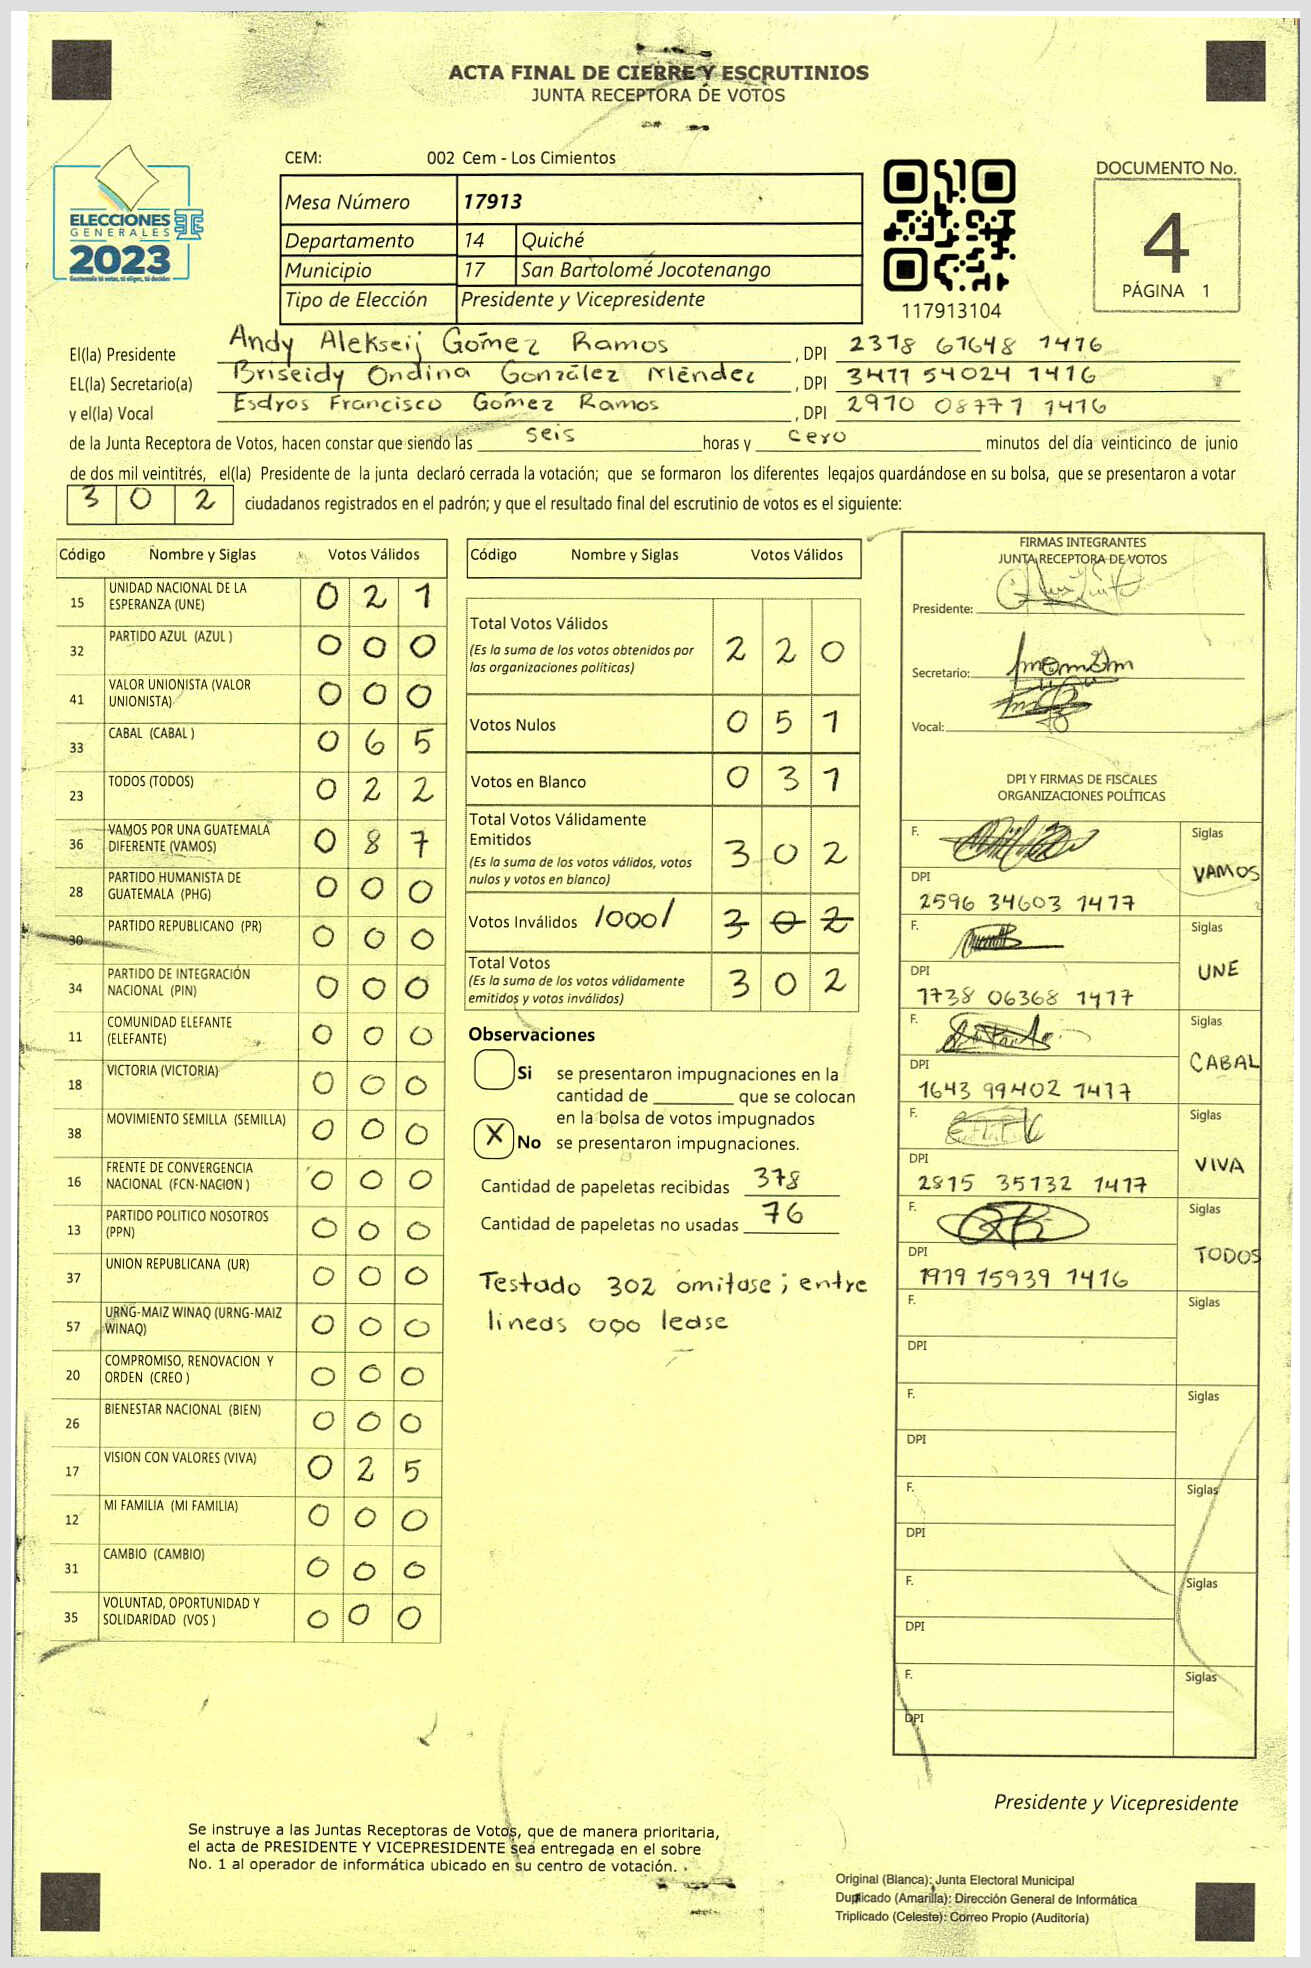 ACTA FINAL DE CIERRE Y ESCRUTINIOS
JUNTA RECEPTORA DE VOTOS
ELECCIONES
GENERALES
2023
CEM: 002 Cem - Los Cimientos
Mesa Número 17913
Departamento 14 Quiché
Municipio 17 San Bartolomé Jocotenango
Tipo de Elección Presidente y Vicepresidente
117913104
DOCUMENTO No.
4
PÁGINA 1
El(la) Presidente Andy Alekseij Gómez Ramos , DPI 2378 67648 1416
EL(la) Secretario(a) Briseidy Ondina González Méndez , DPI 3477 54024 1416
y el(la) Vocal Esdros Francisco Gómez Ramos , DPI 2970 08777 1416
de la Junta Receptora de Votos, hacen constar que siendo las seis horas y cero minutos del día veinticinco de junio
de dos mil veintitrés, el(la) Presidente de la junta declaró cerrada la votación; que se formaron los diferentes legajos quardándose en su bolsa, que se presentaron a votar
302 ciudadanos registrados en el padrón; y que el resultado final del escrutinio de votos es el siguiente:
Código Nombre y Siglas Votos Válidos
15 UNIDAD NACIONAL DE LA ESPERANZA (UNE) 0 2 1
32 PARTIDO AZUL (AZUL ) 0 0 0
41 VALOR UNIONISTA (VALOR UNIONISTA) 0 0 0
33 CABAL (CABAL ) 0 6 5
23 TODOS (TODOS) 0 2 2
36 VAMOS POR UNA GUATEMALA DIFERENTE (VAMOS) 0 8 7
28 PARTIDO HUMANISTA DE GUATEMALA (PHG) 0 0 0
30 PARTIDO REPUBLICANO (PR) 0 0 0
34 PARTIDO DE INTEGRACIÓN NACIONAL (PIN) 0 0 0
11 COMUNIDAD ELEFANTE (ELEFANTE) 0 0 0
18 VICTORIA (VICTORIA) 0 0 0
38 MOVIMIENTO SEMILLA (SEMILLA) 0 0 0
16 FRENTE DE CONVERGENCIA NACIONAL (FCN-NACION ) 0 0 0
13 PARTIDO POLITICO NOSOTROS (PPN) 0 0 0
37 UNION REPUBLICANA (UR) 0 0 0
57 URNG-MAIZ WINAQ (URNG-MAIZ WINAQ) 0 0 0
20 COMPROMISO, RENOVACION Y ORDEN (CREO ) 0 0 0
26 BIENESTAR NACIONAL (BIEN) 0 0 0
17 VISION CON VALORES (VIVA) 0 2 5
12 MI FAMILIA (MI FAMILIA) 0 0 0
31 CAMBIO (CAMBIO) 0 0 0
35 VOLUNTAD, OPORTUNIDAD Y SOLIDARIDAD (VOS ) 0 0 0
Código Nombre y Siglas Votos Válidos
Total Votos Válidos 2 2 0
(Es la suma de los votos obtenidos por
las organizaciones políticas)
Votos Nulos 0 5 1
Votos en Blanco 0 3 1
Total Votos Válidamente
Emitidos 3 0 2
(Es la suma de los votos válidos, votos
nulos y votos en blanco)
Votos Inválidos /000/ 3 0 2
Total Votos 3 0 2
(Es la suma de los votos válidamente
emitidos y votos inválidos)
Observaciones
Si se presentaron impugnaciones en la
cantidad de ________ que se colocan
en la bolsa de votos impugnados
X No se presentaron impugnaciones.
Cantidad de papeletas recibidas 378
Cantidad de papeletas no usadas 76
Testado 302 omitase; entre
lineas 000 lease
FIRMAS INTEGRANTES
JUNTA RECEPTORA DE VOTOS
Presidente:
Secretario:
Vocal:
DPI Y FIRMAS DE FISCALES
ORGANIZACIONES POLÍTICAS
F. Siglas
VAMOS
DPI
2596 34603 1417
F. Siglas
UNE
DPI
1738 06368 1417
F. Siglas
CABAL
DPI
1643 99402 1417
F. Siglas
VIVA
DPI
2815 35132 1417
F. Siglas
TODOS
DPI
1919 15939 1416
F. Siglas
DPI
F. Siglas
DPI
F. Siglas
DPI
F. Siglas
DPI
F. Siglas
DPI
Presidente y Vicepresidente
Se instruye a las Juntas Receptoras de Votos, que de manera prioritaria,
el acta de PRESIDENTE Y VICEPRESIDENTE sea entregada en el sobre
No. 1 al operador de informática ubicado en su centro de votación.
Original (Blanca): Junta Electoral Municipal
Duplicado (Amarilla): Dirección General de Informática
Triplicado (Celeste): Correo Propio (Auditoría)